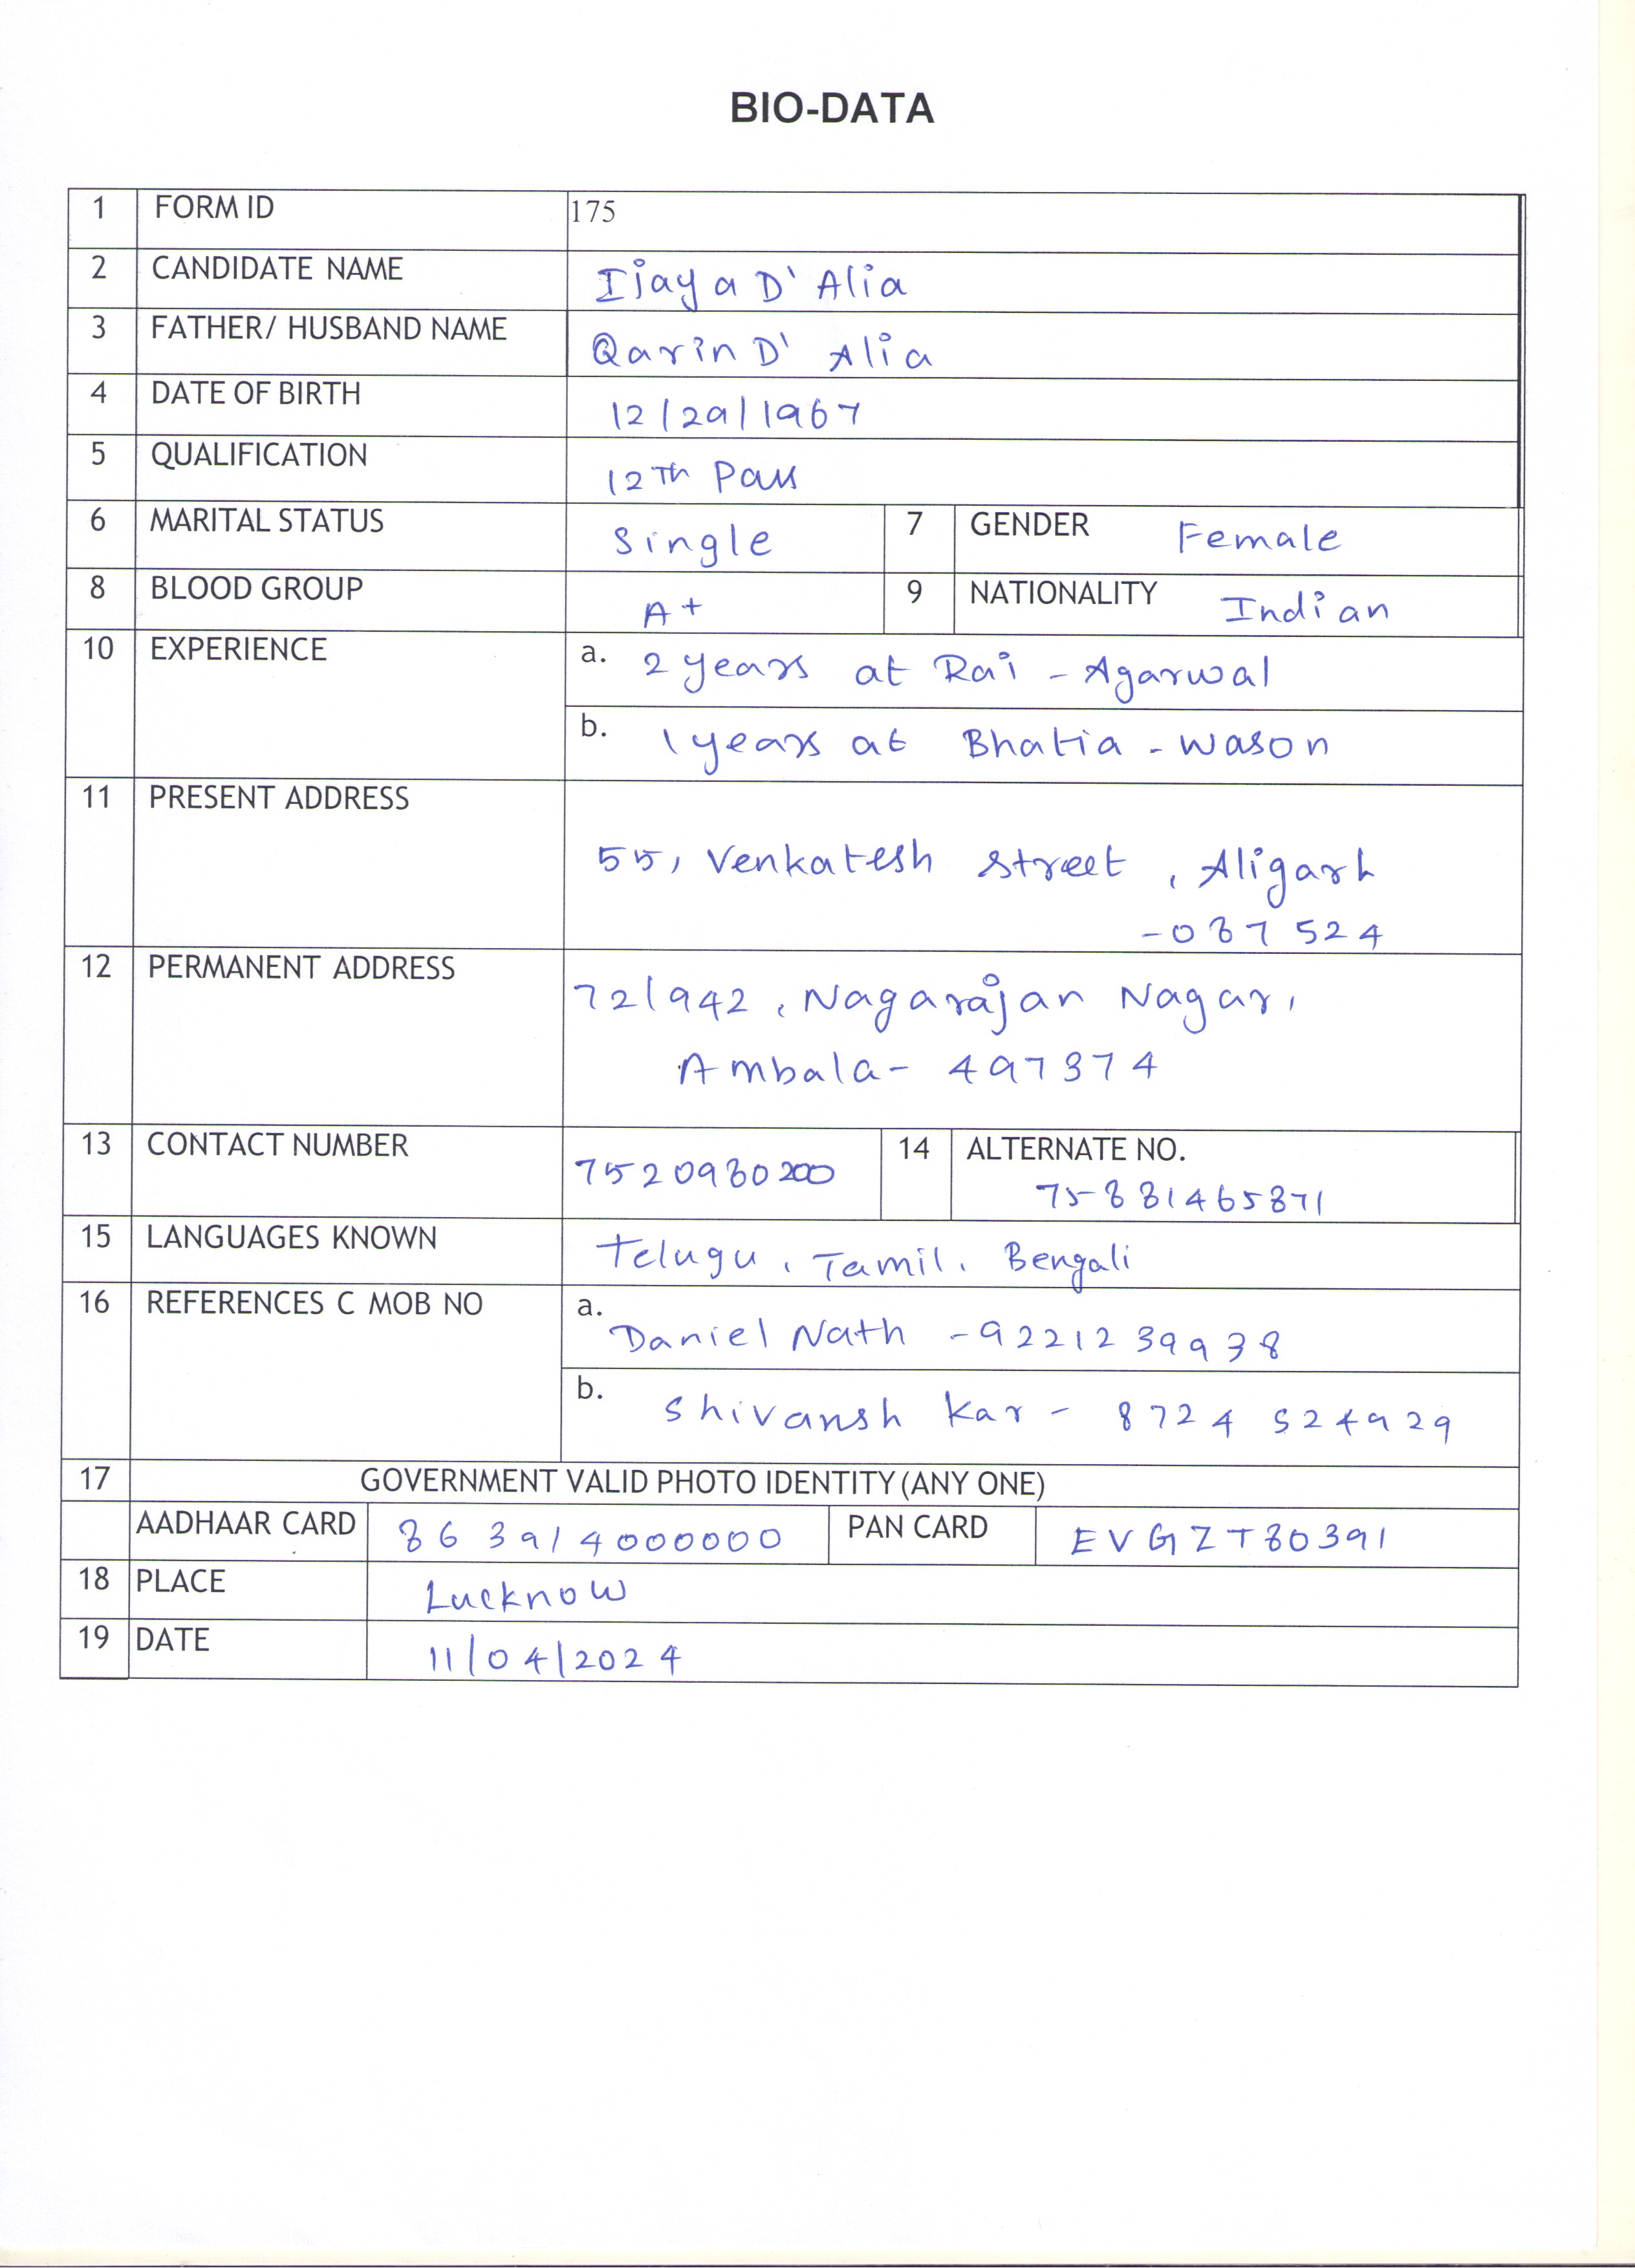 BIO-DATA
1 FORM ID 175
2 CANDIDATE NAME Ijaya D'Alia
3 FATHER/ HUSBAND NAME Qarin D'Alia
4 DATE OF BIRTH 12/29/1967
5 QUALIFICATION 12Th Pass
6 MARITAL STATUS Single 7 GENDER Female
8 BLOOD GROUP A+ 9 NATIONALITY Indian
10 EXPERIENCE a. 2 years at Rai - Agarwal
b. 1 years at Bhatia - Wason
11 PRESENT ADDRESS
55, Venkatesh Street, Aligarh
12 PERMANENT ADDRESS
72/942, Nagarajan Nagar,
Ambala- 497374
13 CONTACT NUMBER 7520980200 14 ALTERNATE NO.
15 LANGUAGES KNOWN Telugu, Tamil, Bengali
16 REFERENCES C MOB NO a.
Daniel Nath - 9221239938
b. Shivansh Kar - 8724524929
17 GOVERNMENT VALID PHOTO IDENTITY (ANY ONE)
AADHAAR CARD 863914000000 PAN CARD EVGZT80391
18 PLACE Lucknow
19 DATE 11/04/2024